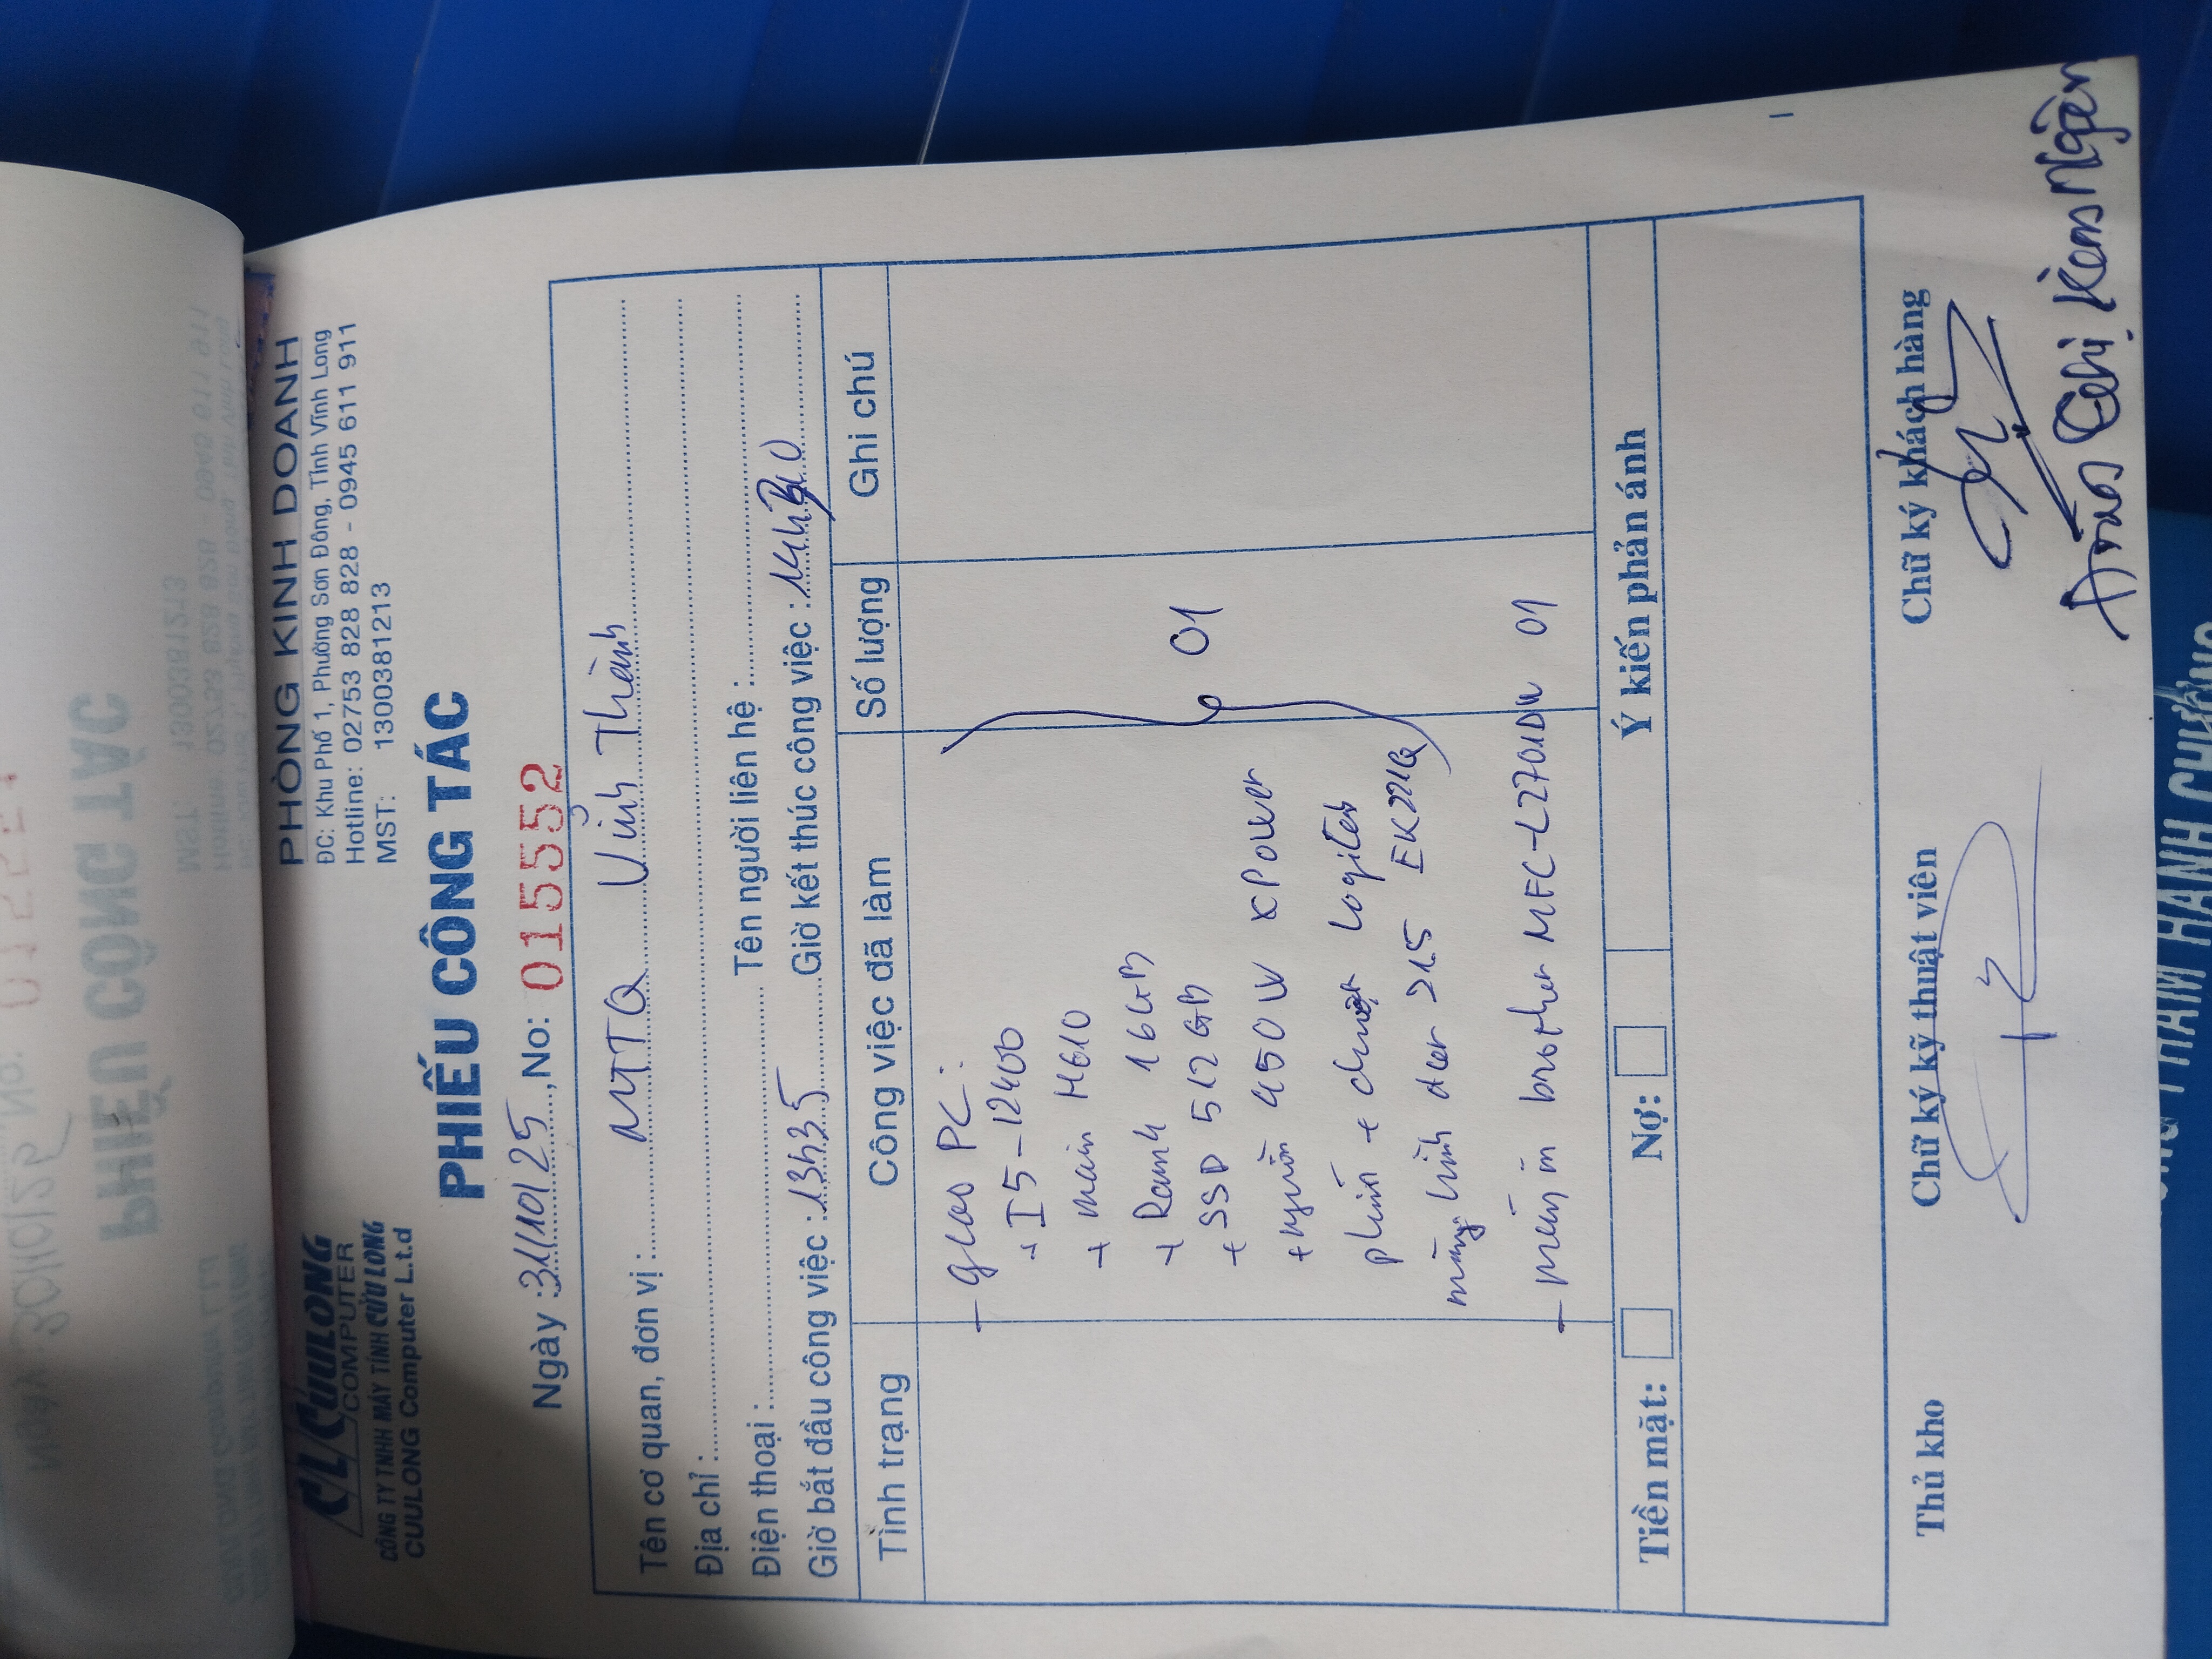 CL CỬULONG
COMPUTER
CÔNG TY TNHH MÁY TÍNH CỬU LONG
CUULONG Computer L.t.d
PHÒNG KINH DOANH
ĐC: Khu Phố 1, Phường Sơn Đông, Tỉnh Vĩnh Long
Hotline: 02753 828 828 - 0945 611 911
MST: 1300381213
PHIẾU CÔNG TÁC
Ngày : 31/10/25, No: 015552
Tên cơ quan, đơn vị : MTTQ Vĩnh Thành
Địa chỉ :
Điện thoại : Tên người liên hệ :
Giờ bắt đầu công việc : 13h35 Giờ kết thúc công việc : 14h
Tình trạng Công việc đã làm Số lượng Ghi chú
- giao PC :
+ I5-12400
+ main H610
+ Ram4 16GB
+ SSD 512GB
+ nguồn 450W xPower
phím + chuột Logitech
màn hình acer 21.5 EK221Q
01
- máy in brother MFC-L2701DW 01
Tiền mặt: Nợ: Ý kiến phản ánh
Thủ kho Chữ ký kỹ thuật viên Chữ ký khách hàng
Ngân